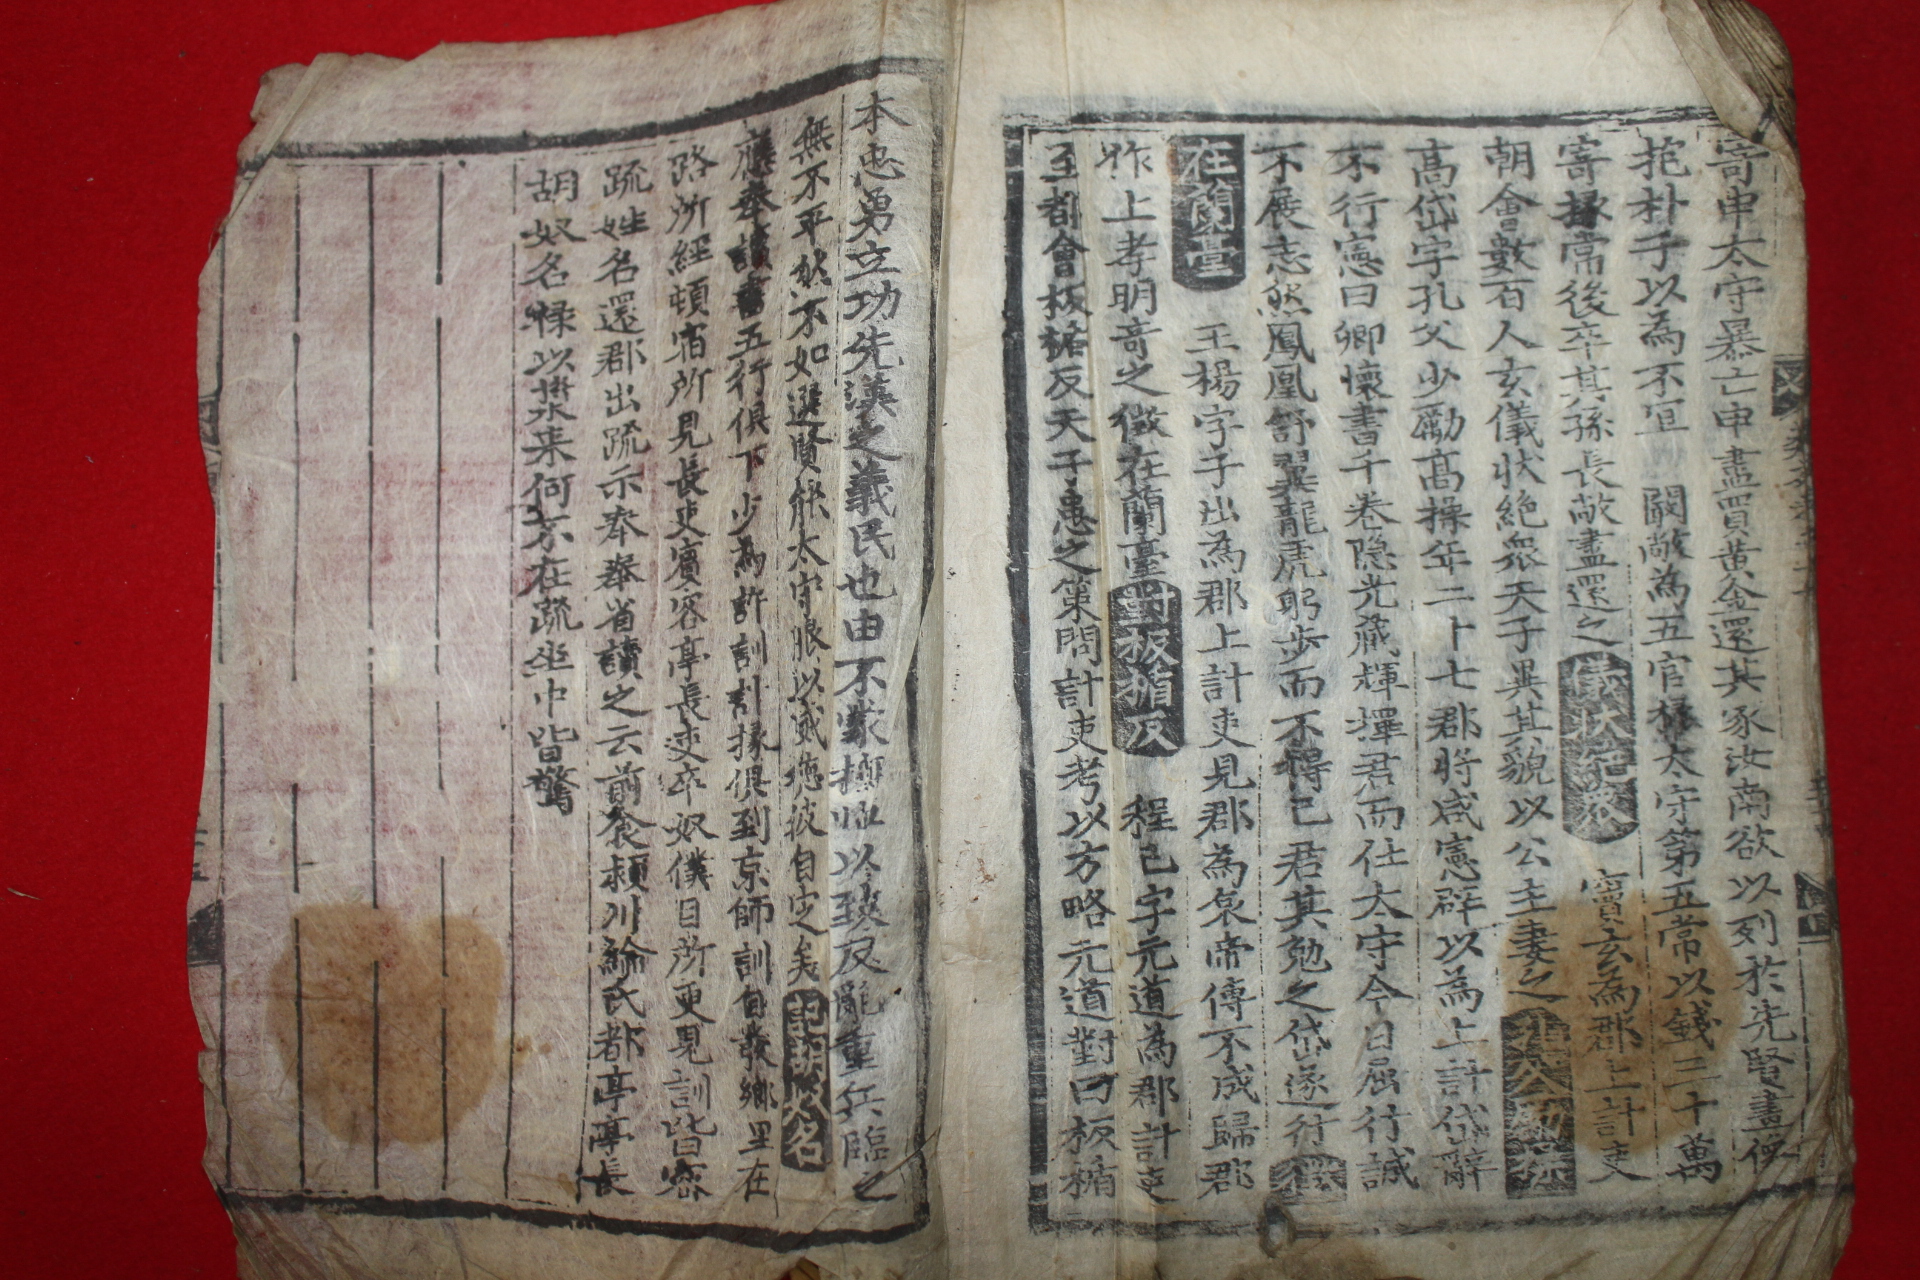 寄申太守暴亡申盡買黃金還其家汝南欲以列於先賢畫像
抱朴子以為不宜 闞敞為五官掾太守第五常以錢三十萬
寄掾常後卒其孫長敞盡還之 儀狀絕衆 竇玄為郡上計吏
朝會數百人玄儀狀絕衆天子異其貌以公主妻之
高岱字孔父少勵高操年二十七郡將咸憲辟以為上計岱辭
不行憲曰卿懷書千卷隱光藏輝擇君而仕太守今日屈行誠
不展志然鳳凰舒翼龍虎躬步而不得已君其勉之岱遂行
在蘭臺 王楊字子出為郡上計吏見郡為哀帝傳不成歸郡
作上孝明奇之徵在蘭臺 對板楯反 程包字元道為郡計吏
至都會板楯反天子愚之策問計吏考以方略元道對曰板楯
本忠勇立功先漢之義民也由不蒙撫恤以致反亂重兵臨之
無不平然不如選賢能太守恨以威德彼自定矣
應奉讀書五行俱下少為許訓計掾俱到京師訓自發鄉里在
路所經頓宿所見長吏賓客亭長吏卒奴僕目所更見訓皆密
疏姓名還郡出疏示奉奉省讀之云前食潁川綸氏都亭亭長
胡奴名祿以漿來何不在疏坐中皆驚